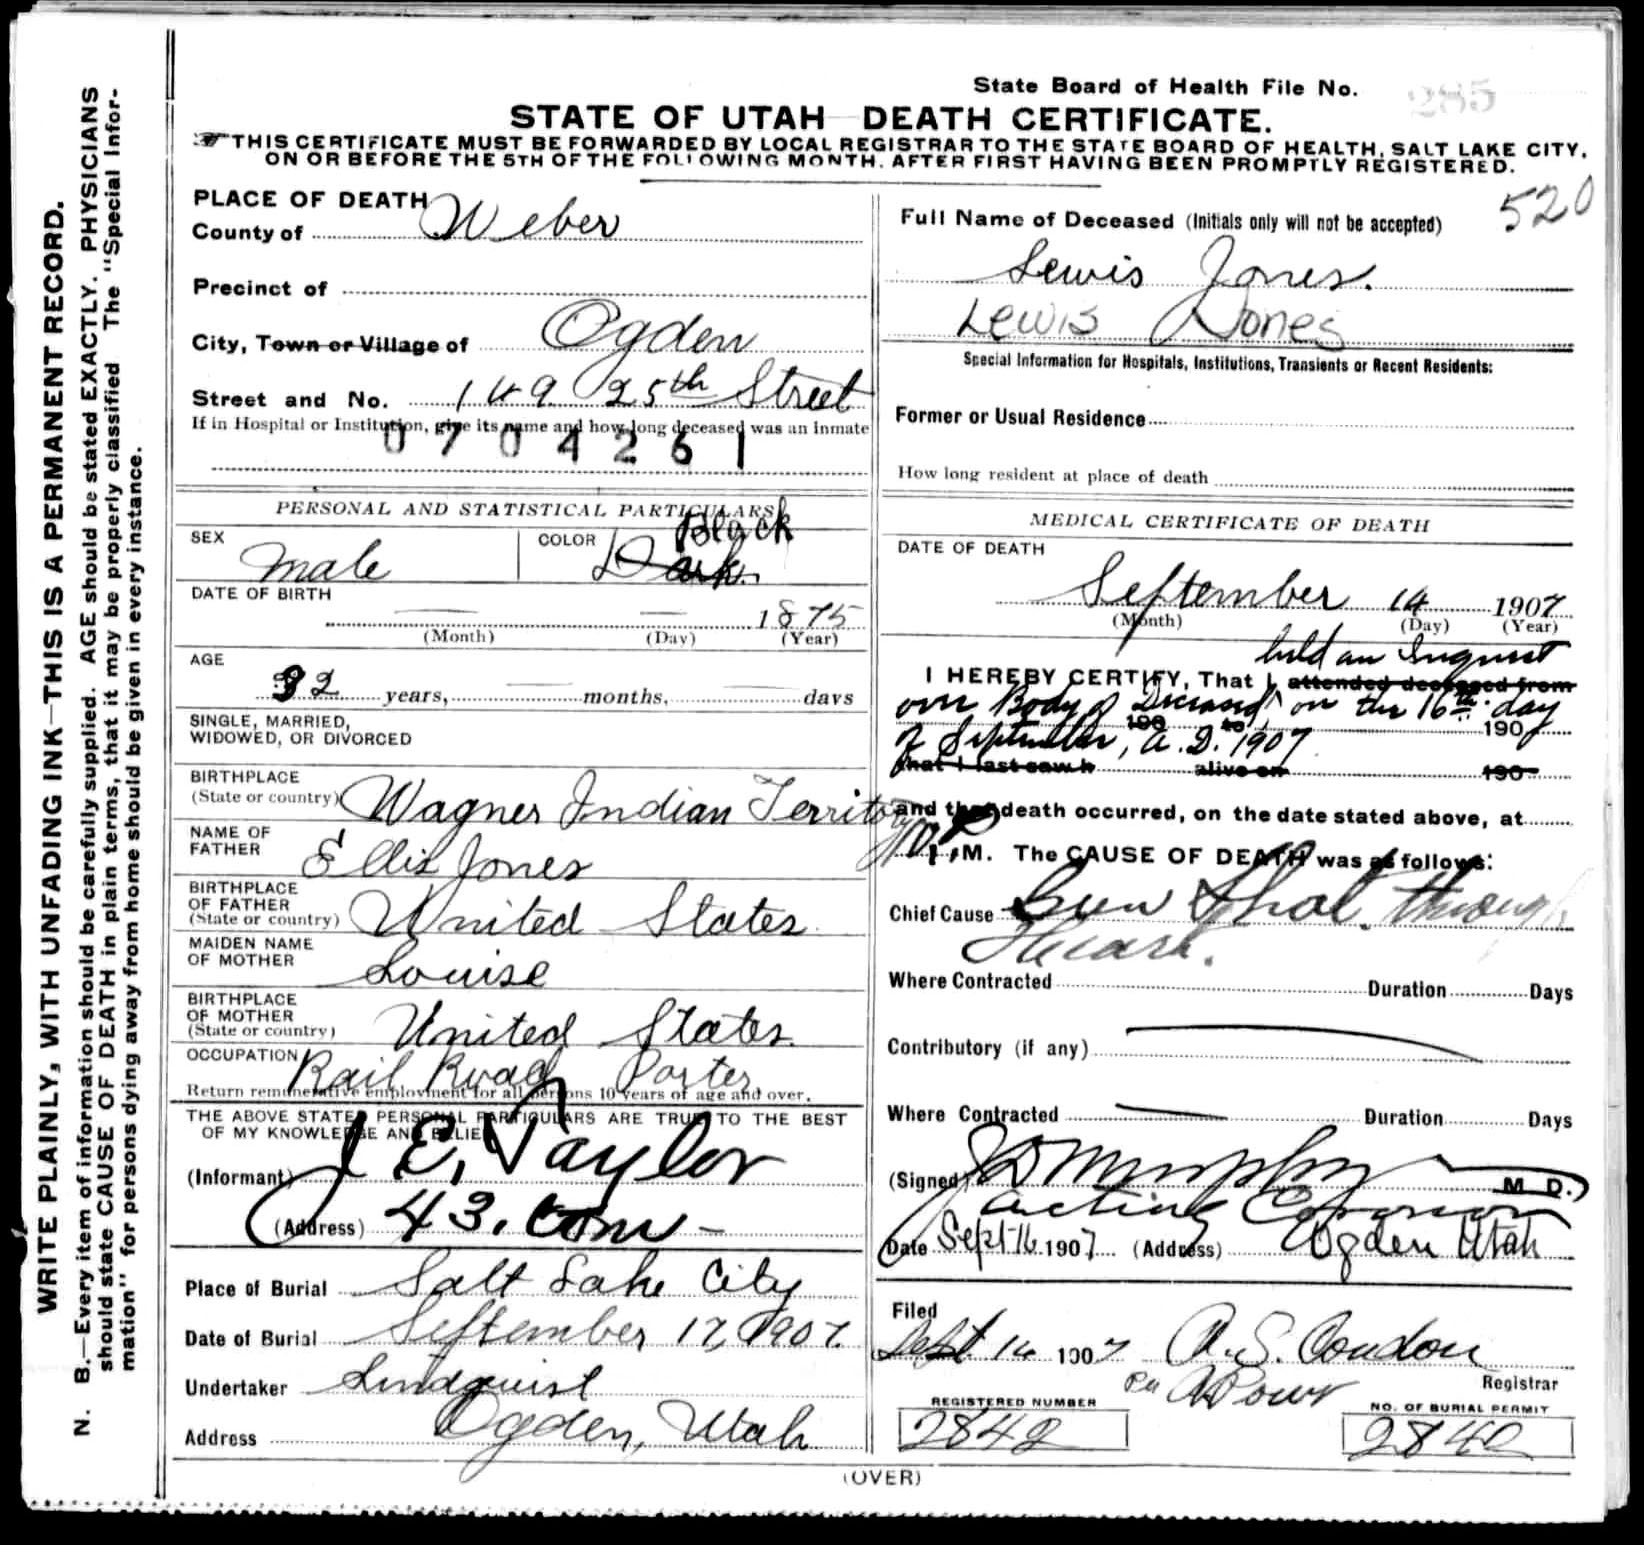 State Board of Health File No. 285
STATE OF UTAH DEATH CERTIFICATE.
THIS CERTIFICATE MUST BE FORWARDED BY LOCAL REGISTRAR TO THE STATE BOARD OF HEALTH, SALT LAKE CITY,
ON OR BEFORE THE 5TH OF THE FOLLOWING MONTH. AFTER FIRST HAVING BEEN PROMPTLY REGISTERED.
WRITE PLAINLY, WITH UNFADING INK—THIS IS A PERMANENT RECORD.
N. B.—Every item of information should be carefully supplied. AGE should be stated EXACTLY. PHYSICIANS
should state CAUSE OF DEATH in plain terms, that it may be properly classified The "Special Infor-
mation" for persons dying away from home should be given in every instance.
PLACE OF DEATH
County of Weber
Precinct of
City, Town or Village of Ogden
Street and No. 149 25th Street
If in Hospital or Institution, give its name and how long deceased was an inmate
0704261
PERSONAL AND STATISTICAL PARTICULARS
SEX Male
COLOR Dark Black
DATE OF BIRTH
— — 1875
(Month) (Day) (Year)
AGE
32 years, — months, — days
SINGLE, MARRIED,
WIDOWED, OR DIVORCED
BIRTHPLACE
(State or country) Wagner Indian Territory
NAME OF
FATHER Ellis Jones
BIRTHPLACE
OF FATHER
(State or country) United States
MAIDEN NAME
OF MOTHER Louise
BIRTHPLACE
OF MOTHER
(State or country) United States.
OCCUPATION Rail Road Porter
Return remunerative employment for all persons 10 years of age and over.
THE ABOVE STATED PERSONAL PARTICULARS ARE TRUE TO THE BEST
OF MY KNOWLEDGE AND BELIEF
(Informant) J E. Taylor
(Address) 43. Com
Place of Burial Salt Lake City
Date of Burial September 17, 1907.
Undertaker Lindquist
Address Ogden, Utah
520
Full Name of Deceased (Initials only will not be accepted)
Lewis Jones.
Lewis Jones
Special Information for Hospitals, Institutions, Transients or Recent Residents:
Former or Usual Residence
How long resident at place of death
MEDICAL CERTIFICATE OF DEATH
DATE OF DEATH
September 14 1907
(Month) (Day) (Year)
held an Inquest
I HEREBY CERTIFY, That I attended deceased from
over Body of Deceased, on the 16th day
190 to 190
of September, A. D. 1907
that I last saw h alive on 190
and that death occurred, on the date stated above, at
M. The CAUSE OF DEATH was as follows:
Chief Cause Gun Shot through
Heart.
Where Contracted Duration Days
Contributory (if any)
Where Contracted — Duration Days
(Signed) J D Murphy M D.
Acting Coroner
Date Sept 16 1907 (Address) Ogden Utah
Filed
Sept. 16 1907 A. S. Condon
Registrar
REGISTERED NUMBER
2842
NO. OF BURIAL PERMIT
2842
(OVER)